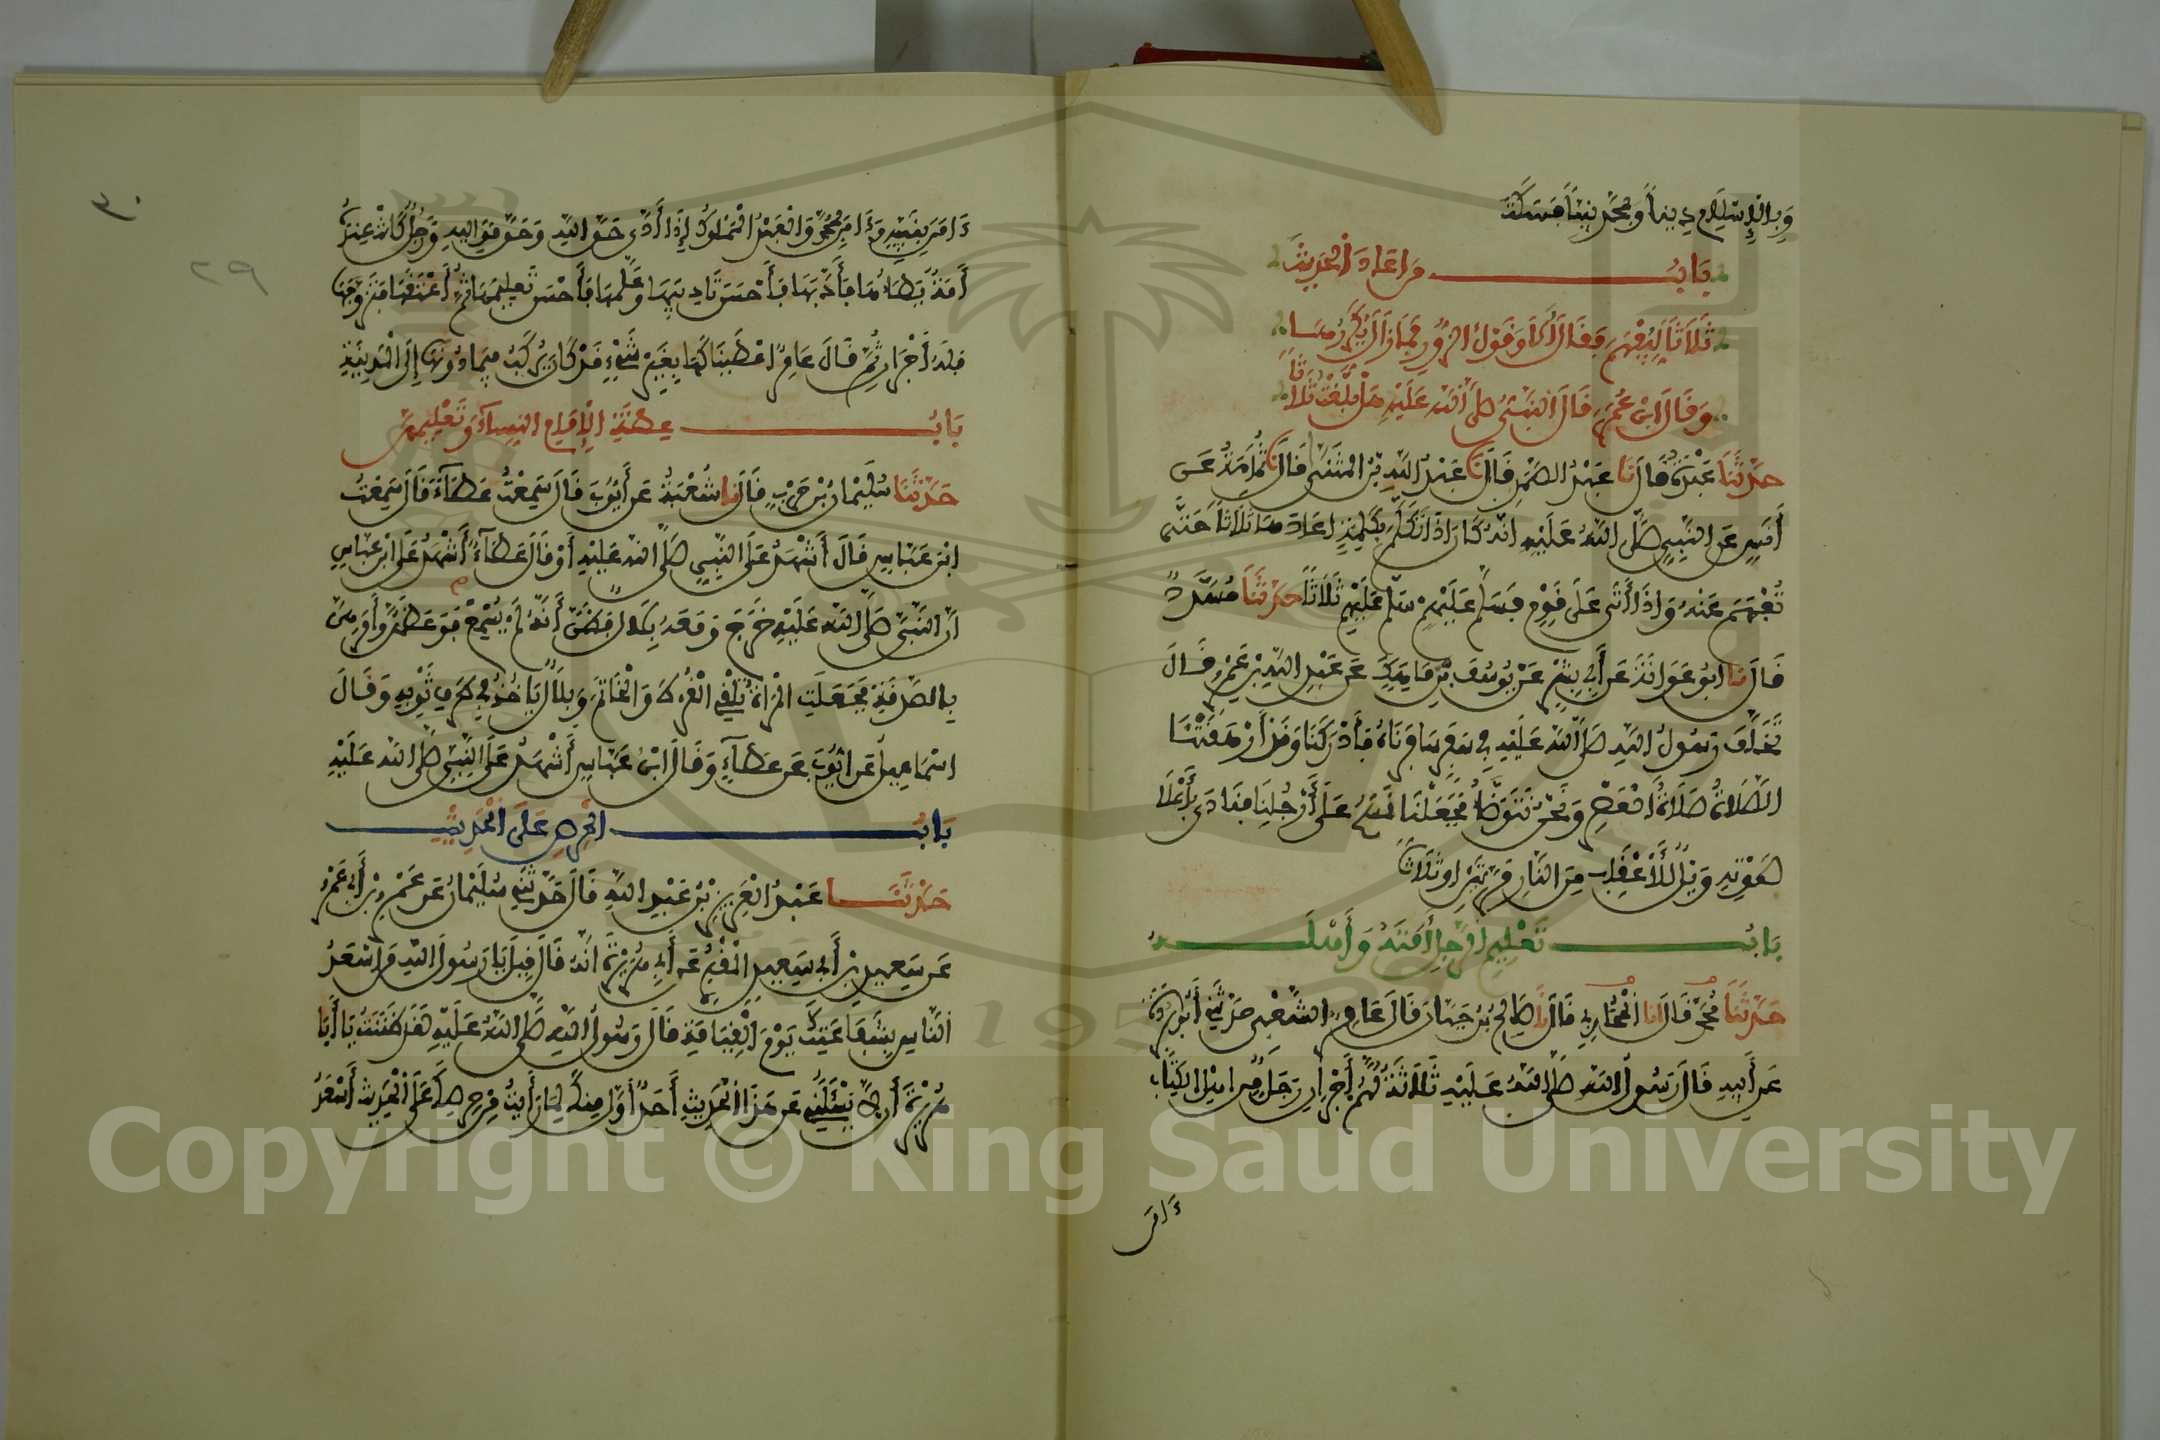 وَبِالْإِسْلَامِ دِيناً وَبِمُحَمَّدٍ نَبِيّاً فَسَكَتَ
بَابُ مَنْ أَعَادَ الْحَدِيثَ
ثَلَاثاً لِيُفْهَمَ فَقَالَ أَلَا وَقَوْلُ الزُّورِ فَمَا زَالَ يُكَرِّرُهَا
وَقَالَ ابْنُ عُمَرَ قَالَ النَّبِيُّ صَلَّى اللهُ عَلَيْهِ هَلْ بَلَّغْتُ ثَلَاثاً
حَدَّثَنَا عَبْدَةُ قَالَ نَا عَبْدُ الصَّمَدِ قَالَ نَا عَبْدُ اللهِ بْنُ الْمُثَنَّى قَالَ نَا ثُمَامَةُ عَنْ
أَنَسٍ عَنِ النَّبِيِّ صَلَّى اللهُ عَلَيْهِ أَنَّهُ كَانَ إِذَا تَكَلَّمَ بِكَلِمَةٍ أَعَادَهَا ثَلَاثاً حَتَّى
تُفْهَمَ عَنْهُ وَإِذَا أَتَى عَلَى قَوْمٍ فَسَلَّمَ عَلَيْهِمْ سَلَّمَ عَلَيْهِمْ ثَلَاثاً حَدَّثَنَا مُسَدَّدٌ
قَالَ نَا أَبُو عَوَانَةَ عَنْ أَبِي بِشْرٍ عَنْ يُوسُفَ بْنِ مَاهَكَ عَنْ عَبْدِ اللهِ بْنِ عَمْرٍو قَالَ
تَخَلَّفَ رَسُولُ اللهِ صَلَّى اللهُ عَلَيْهِ فِي سَفَرٍ سَافَرْنَاهُ فَأَدْرَكَنَا وَقَدْ أَرْهَقَتْنَا
الصَّلَاةُ صَلَاةُ الْعَصْرِ وَنَحْنُ نَتَوَضَّأُ فَجَعَلْنَا نَمْسَحُ عَلَى أَرْجُلِنَا فَنَادَى بِأَعْلَا
صَوْتِهِ وَيْلٌ لِلْأَعْقَابِ مِنَ النَّارِ مَرَّتَيْنِ أَوْ ثَلَاثاً
بَابُ تَعْلِيمِ الرَّجُلِ أَمَتَهُ وَأَهْلَهُ
حَدَّثَنَا مُحَمَّدٌ قَالَ نَا الْمُحَارِبِي قَالَ نَا صَالِحُ بْنُ حَيَّانَ قَالَ عَامِرٌ الشَّعْبِي حَدَّثَنِي أَبُو بُرْدَةَ
عَنْ أَبِيهِ قَالَ رَسُولُ اللهِ صَلَّى اللهُ عَلَيْهِ ثَلَاثَةٌ لَهُمْ أَجْرَانِ رَجُلٌ مِنْ أَهْلِ الْكِتَابِ
ءَامَنَ
٣٠
٢٩
ءَامَنَ بِنَبِيِّهِ وَءَامَنَ بِمُحَمَّدٍ وَالْعَبْدُ الْمَمْلُوكُ إِذَا أَدَّى حَقَّ اللهِ وَحَقَّ مَوَالِيهِ وَرَجُلٌ كَانَتْ عِنْدَهُ
أَمَةٌ يَطَأُهَا فَأَدَّبَهَا فَأَحْسَنَ تَأْدِيبَهَا وَعَلَّمَهَا فَأَحْسَنَ تَعْلِيمَهَا ثُمَّ أَعْتَقَهَا فَتَزَوَّجَهَا
فَلَهُ أَجْرَانِ ثُمَّ قَالَ عَامِرٌ أَعْطَيْنَاكَهَا بِغَيْرِ شَيْءٍ قَدْ كَانَ يُرْكَبُ فِيمَا دُونَهَا إِلَى الْمَدِينَةِ
بَابُ عِظَةِ الْإِمَامِ النِّسَاءَ وَتَعْلِيمِهِنَّ
حَدَّثَنَا سُلَيْمَانُ بْنُ حَرْبٍ قَالَ نَا شُعْبَةُ عَنْ أَيُّوبَ قَالَ سَمِعْتُ عَطَاءً قَالَ سَمِعْتُ
ابْنَ عَبَّاسٍ قَالَ أَشْهَدُ عَلَى النَّبِيِّ صَلَّى اللهُ عَلَيْهِ أَوْ قَالَ عَطَاءٌ أَشْهَدُ عَلَى ابْنِ عَبَّاسٍ
أَنَّ النَّبِيَّ صَلَّى اللهُ عَلَيْهِ خَرَجَ وَمَعَهُ بِلَالٌ فَظَنَّ أَنَّهُ لَمْ يُسْمِعْ فَوَعَظَهُنَّ وَأَمَرَهُنَّ
بِالصَّدَقَةِ فَجَعَلَتِ الْمَرْأَةُ تُلْقِي الْقُرْطَ وَالْخَاتَمَ وَبِلَالٌ يَأْخُذُ فِي طَرَفِ ثَوْبِهِ وَقَالَ
إِسْمَاعِيلُ عَنْ أَيُّوبَ عَنْ عَطَاءٍ وَقَالَ ابْنُ عَبَّاسٍ أَشْهَدُ عَلَى النَّبِيِّ صَلَّى اللهُ عَلَيْهِ
بَابُ الْحِرْصِ عَلَى الْحَدِيثِ
حَدَّثَنَا عَبْدُ الْعَزِيزِ بْنُ عَبْدِ اللهِ قَالَ حَدَّثَنِي سُلَيْمَانُ عَنْ عَمْرِو بْنِ أَبِي عَمْرٍو
عَنْ سَعِيدِ بْنِ أَبِي سَعِيدٍ الْمَقْبُرِيِّ عَنْ أَبِي هُرَيْرَةَ أَنَّهُ قَالَ قِيلَ يَا رَسُولَ اللهِ مَنْ أَسْعَدُ
النَّاسِ بِشَفَاعَتِكَ يَوْمَ الْقِيَامَةِ قَالَ رَسُولُ اللهِ صَلَّى اللهُ عَلَيْهِ لَقَدْ ظَنَنْتُ يَا أَبَا
هُرَيْرَةَ أَنْ لَا يَسْأَلَنِي عَنْ هَذَا الْحَدِيثِ أَحَدٌ أَوَّلَ مِنْكَ لِمَا رَأَيْتُ مِنْ حِرْصِكَ عَلَى الْحَدِيثِ أَسْعَدُ
Copyright © King Saud University
195